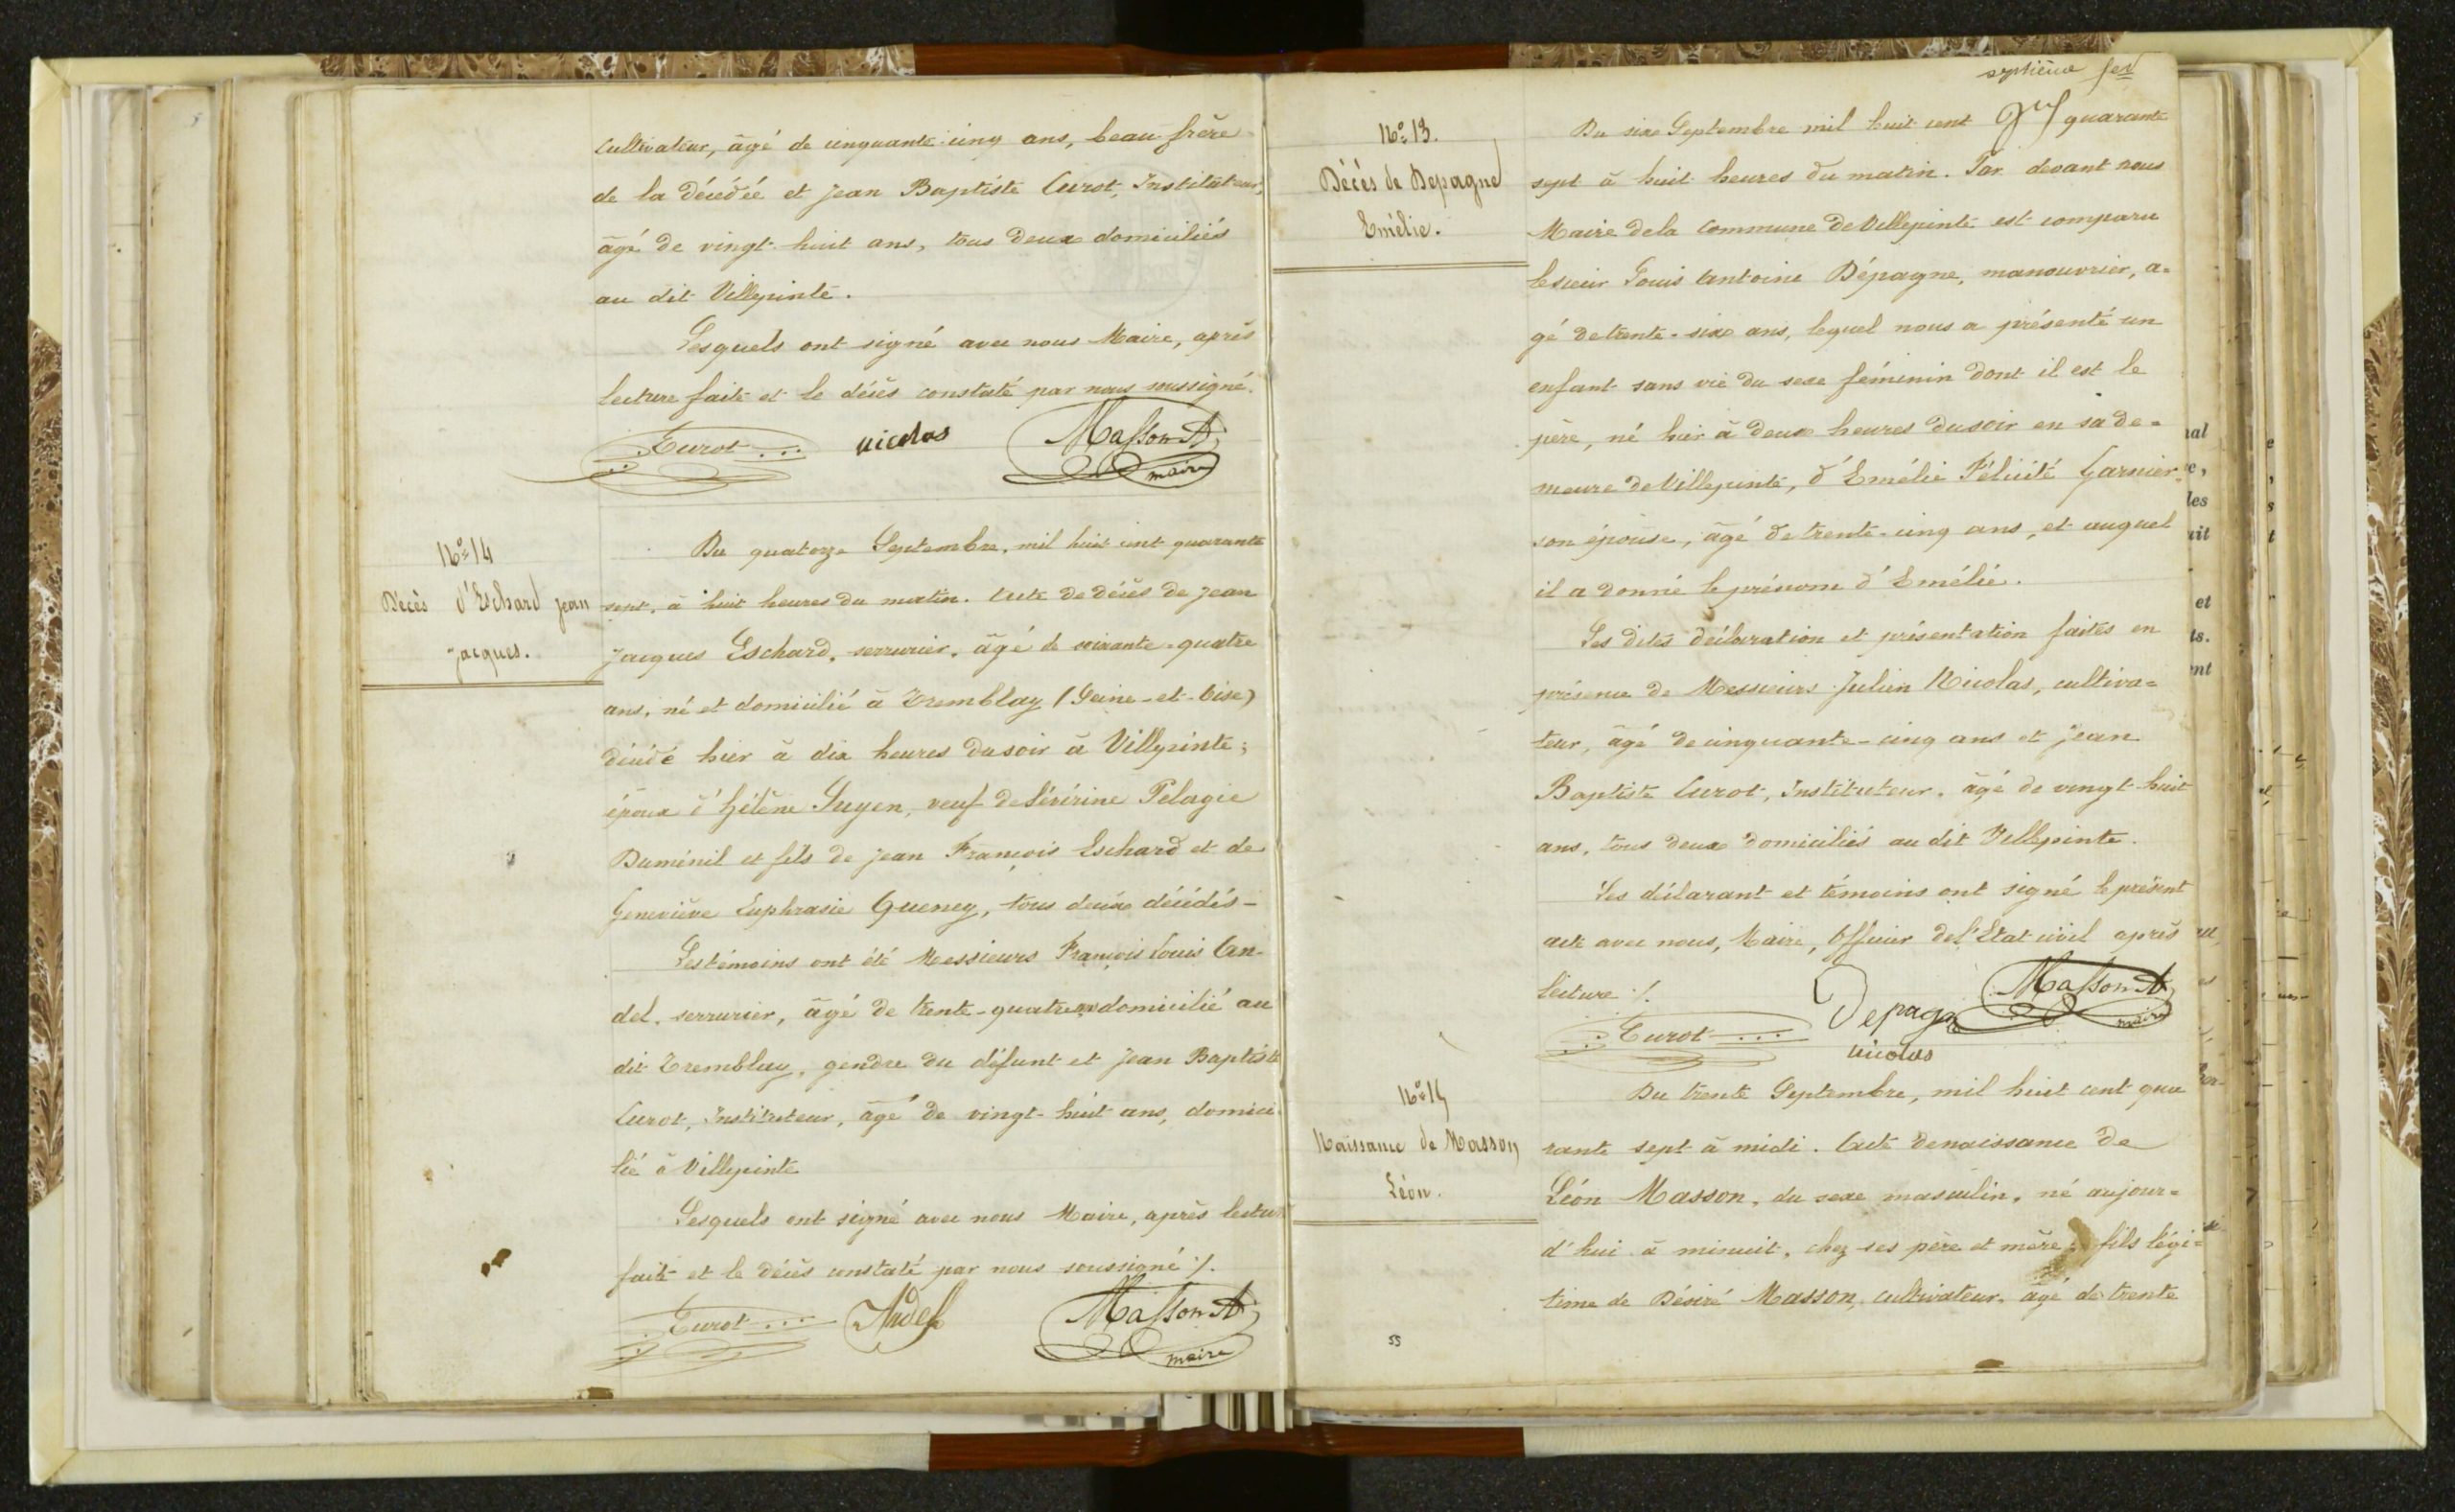 cultivateur, âgé de cinquante cinq ans, beau frère
de la décédée et Jean Baptiste Curot, Instituteur,
âgé de vingt-huit ans, tous deux domiciliés
au dit Villepinte.
Lesquels ont signé avec nous Maire, après
lecture faite et le décès constaté par nous soussigné.
Curot nicolas Masson A
maire
No 14
Décès d'Eschard Jean
Jacques.
Du quatorze Septembre, mil huit cent quarante
sept, à huit heures du matin. Acte de décès de Jean
Jacques Eschard, serrurier, âgé de soixante-quatre
ans, né et domicilié à Tremblay (Seine-et-Oise)
décédé hier à dix heures du soir à Villepinte;
époux d'Hélène Guyen, veuf de Sévérine Pelagie
Duménil et fils de Jean François Eschard et de
Geneviève Euphrasie Queney, tous deux décédés-
Les témoins ont été Messieurs François Louis An-
del, serrurier, âgé de trente-quatre ans domicilié au
dit Tremblay, gendre du défunt et Jean Baptiste
Curot, Instituteur, âgé de vingt-huit ans, domici
lié à Villepinte
Lesquels ont signé avec nous Maire, après lecture
faite et le décès constaté par nous soussigné ./.
Curot Andel Masson A
maire
septième
No 13.
Décès de Depagne
Emélie.
Du six Septembre mil huit cent quarante
sept à huit heures du matin. Par devant nous
Maire de la Commune de Villepinte est comparu
le sieur Louis Antoine Dépagne, manouvrier, a=
gé de trente-six ans, lequel nous a présenté un
enfant sans vie du sexe féminin dont il est le
père, né hier à deux heures du soir en sa de=
meure de Villepinte, d'Emélie Félicité Garnier
son épouse, âgé de trente-cinq ans, et auquel
il a donné le prénom d'Emélie.
Les dites déclaration et présentation faites en
présence de Messieurs Julien Nicolas, cultiva=
teur, âgé de cinquante-cinq ans et Jean
Baptiste Curot, Instituteur, âgé de vingt-huit
ans, tous deux domiciliés au dit Villepinte.
Les déclarant et témoins ont signé le présent
acte avec nous, Maire, Officier de l'Etat civil après
lecture ./.
Curot Depagne Masson A
maire
nicolas
No 15
Naissance de Masson
Léon.
Du trente Septembre, mil huit cent qua
rante sept à midi. Acte de naissance de
Léon Masson, du sexe masculin, né aujour=
d'hui à minuit, chez ses père et mère; fils légi=
time de Désiré Masson, cultivateur, âgé de trente
55